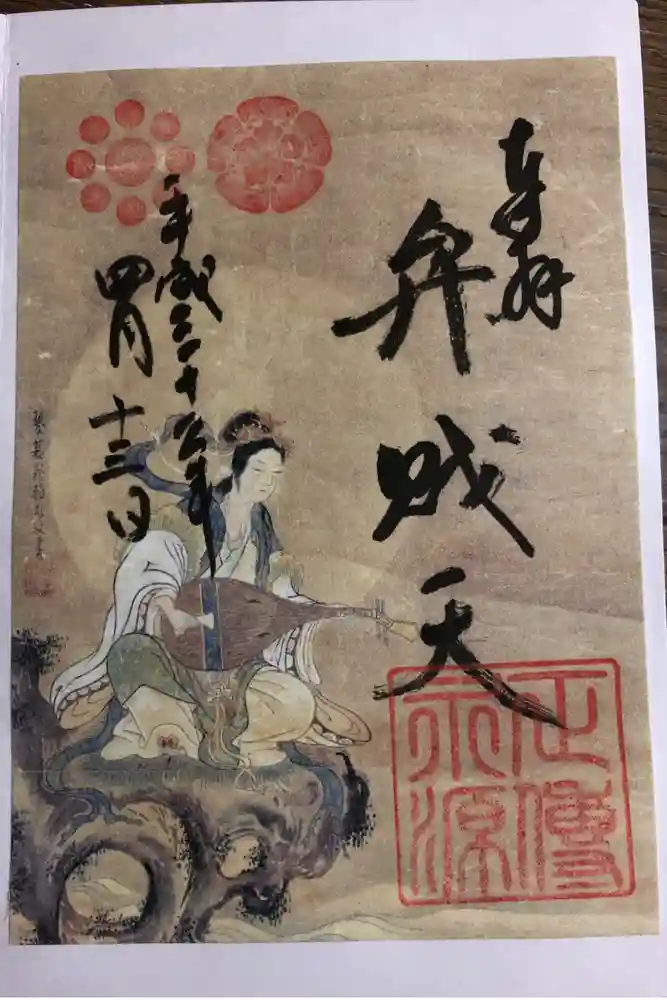 奉拝
弁戝天
正傳
永源
平成二十六年
四月十三日